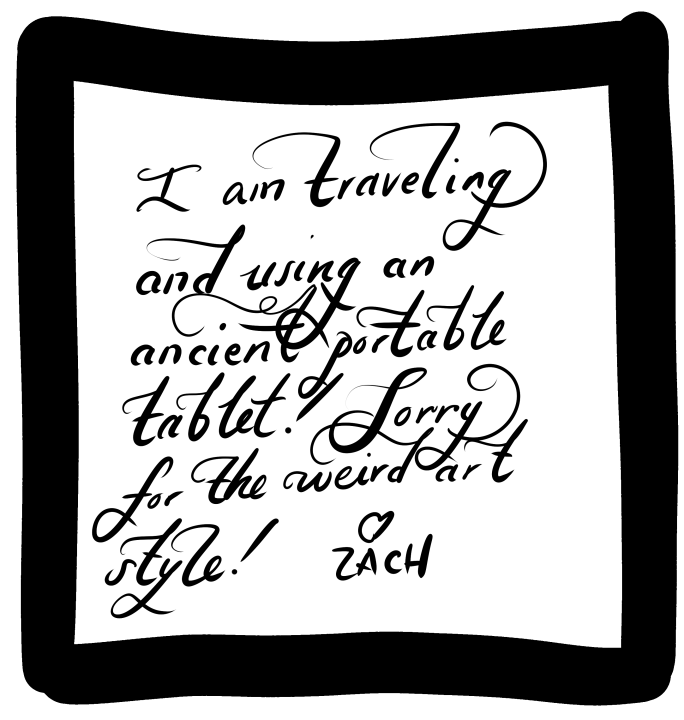 I am traveling
and using an
ancient portable
tablet! Sorry
for the weird art
style! ♡
ZACH